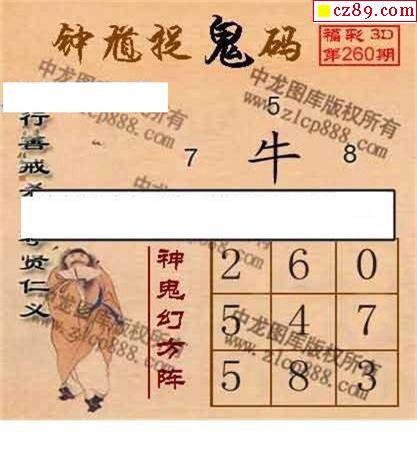 cz89.com
钟馗捉鬼码
福彩3D
第260期
中龙图库版权所有
www.zlcp888.com
5
7 牛 8
行善戒杀
贤仁义
神鬼幻方阵
2 6 0
5 4 7
5 8 3
中龙图库版权所有
www.zlcp888.com